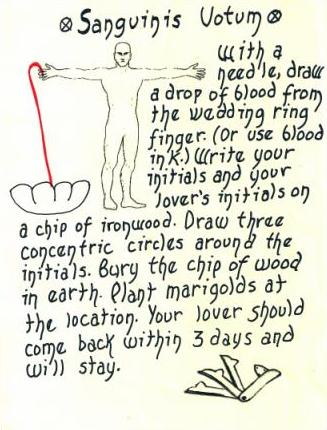 Sanguinis Votum
With a
needle, draw
a drop of blood from
the wedding ring
finger. (Or use blood
ink.) Write your
initials and your
lover's initials on
a chip of ironwood. Draw three
concentric circles around the
initials. Bury the chip of wood
in earth. Plant marigolds at
the location. Your lover should
come back within 3 days and
will stay.